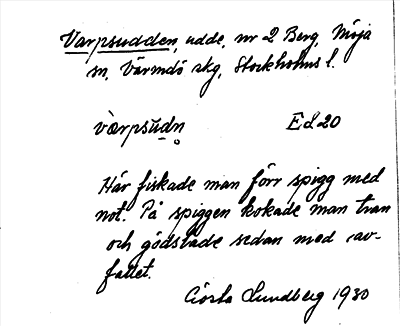 Varpsudden, udde, nr 2 Berg, Möja
sn, Värmdö skg, Stockholms l.
värpsūdn̥ Ed 20
Här fiskade man förr spigg med
not. På spiggen kokade man tran
och gödslade sedan med av-
fallet.
Gösta Sundberg 1930